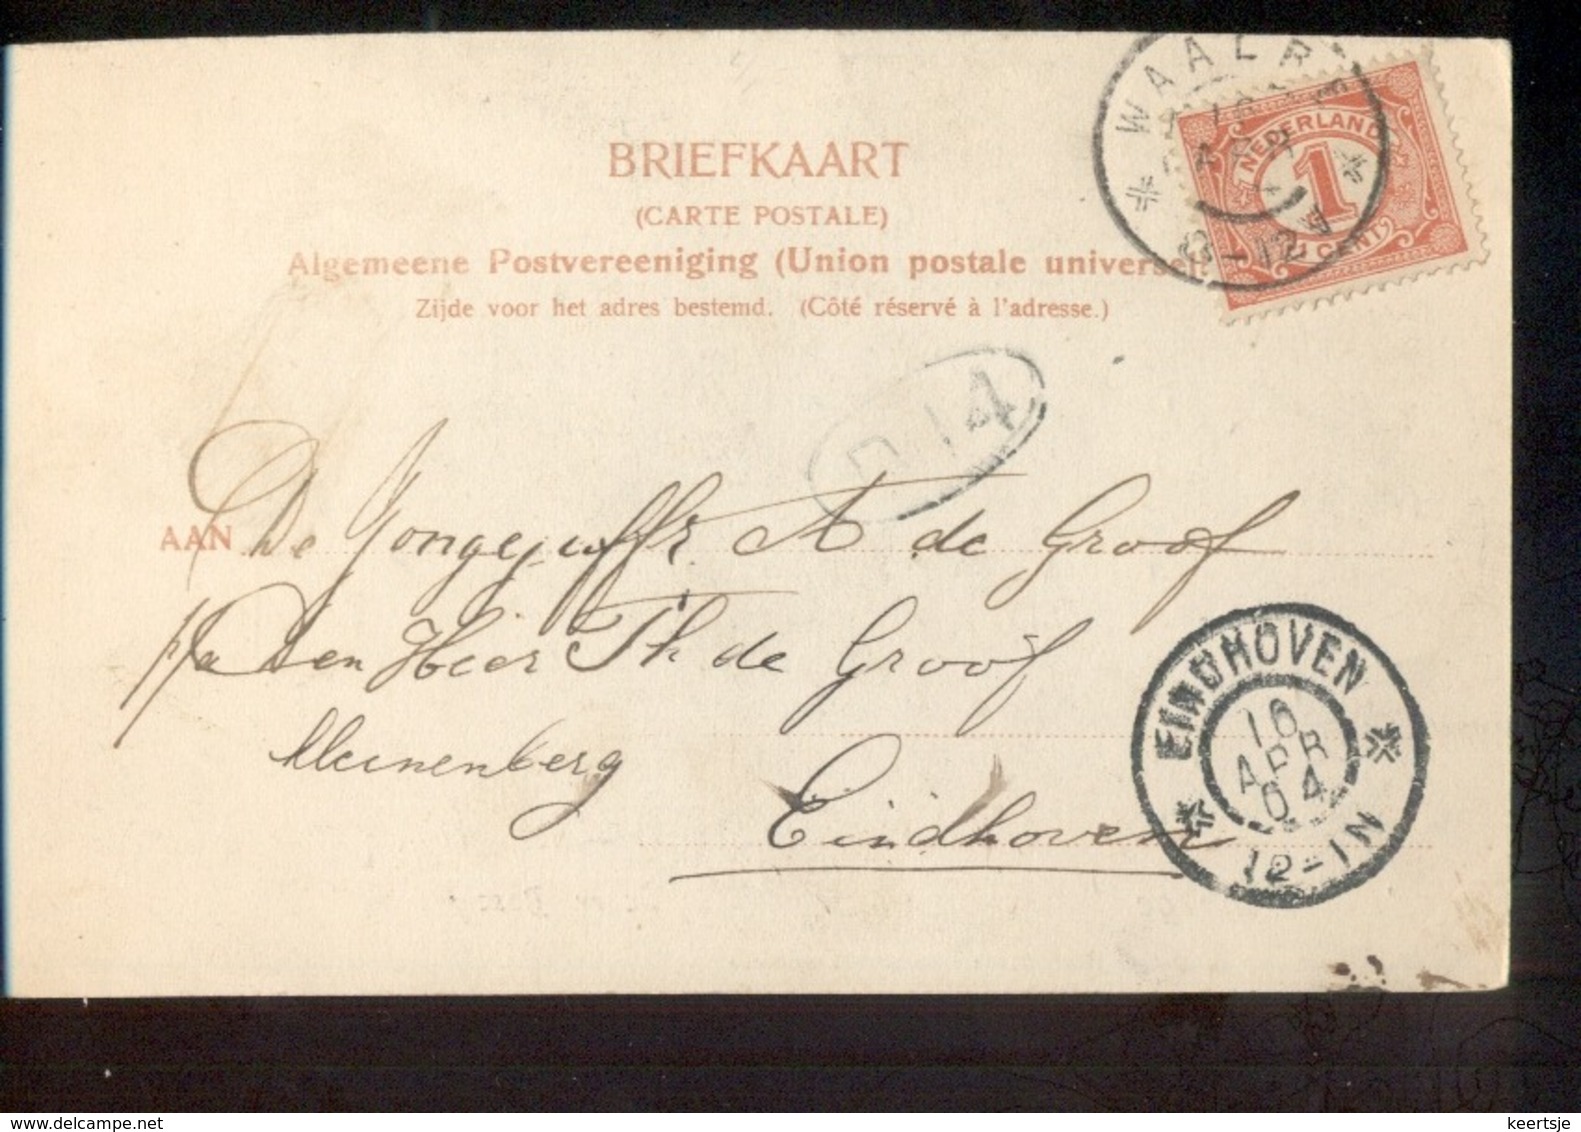 WAALRE
16
APR
8-12V
NEDERLAND
1
CENT
BRIEFKAART
(CARTE POSTALE)
Algemeene Postvereeniging (Union postale universel
Zijde voor het adres bestemd. (Côté réservé à l'adresse.)
14
AAN De Jongejuffr A de Groof
p/a Den Heer Th de Groof
EINDHOVEN
16
APR
04
12-1N
Eindhoven
keertsje